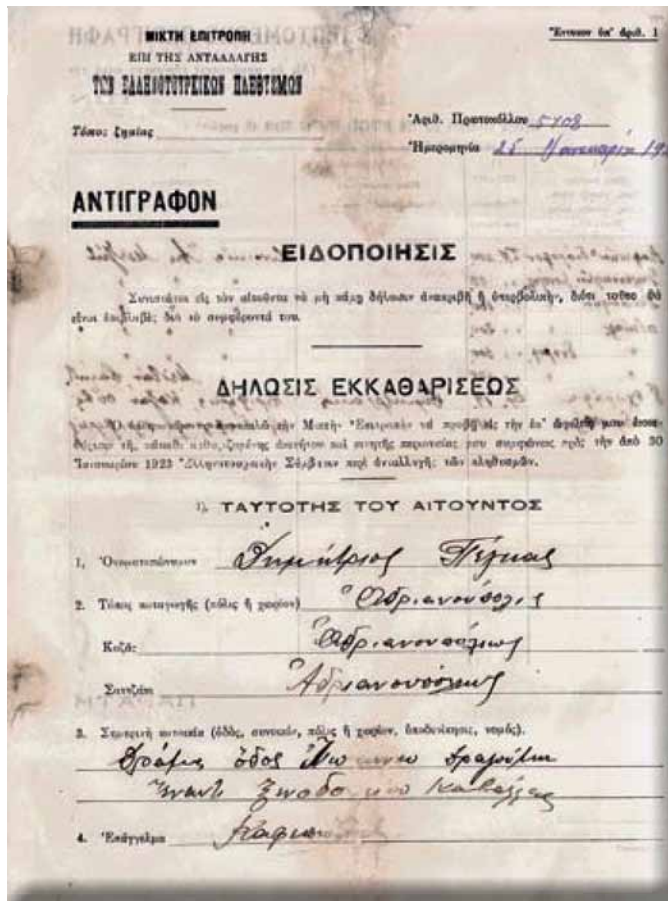 ΜΙΚΤΗ ΕΠΙΤΡΟΠΗ
ΕΠΙ ΤΗΣ ΑΝΤΑΛΛΑΓΗΣ
ΤΩΝ ΕΛΛΗΝΟΤΟΥΡΚΙΚΩΝ ΠΛΗΘΥΣΜΩΝ
Ἔντυπον ὑπ' ἀριθ. 1
Τόπος ζημίας
Ἀριθ. Πρωτοκόλλου 5708
Ἡμερομηνία 25
ΑΝΤΙΓΡΑΦΟΝ
ΕΙΔΟΠΟΙΗΣΙΣ
Συνιστᾶται εἰς τὸν αἰτοῦντα νὰ μὴ κάμῃ δήλωσιν ἀνακριβῆ ἢ ὑπερβολικήν, διότι τοῦτο θὰ
εἶναι ἐπιβλαβὲς διὰ τὸ συμφέροντά του.
ΔΗΛΩΣΙΣ ΕΚΚΑΘΑΡΙΣΕΩΣ
τὴν Μικτὴν Ἐπιτροπὴν νὰ προβῇ εἰς τὴν ἐπ' ὠφελείᾳ μου
καὶ κινητῆς περιουσίας μου συμφώνως πρὸς τὴν ἀπὸ 30
Ἰανουαρίου 1923 Ἑλληνοτουρκικὴν Σύμβασιν περὶ ἀνταλλαγῆς τῶν πληθυσμῶν.
ΤΑΥΤΟΤΗΣ ΤΟΥ ΑΙΤΟΥΝΤΟΣ
1, Ὀνοματεπώνυμον Δημήτριος
2. Τόπος καταγωγῆς (πόλις ἢ χωρίον) Ἀδριανούπολις
Καζᾶς Ἀδριανουπόλεως
Σαντζάκι Ἀδριανουπόλεως
3. Σημερινὴ κατοικία (ὁδός, συνοικία, πόλις ἢ χωρίον, ὑποδιοίκησις, νομός).
Δράμα ὁδὸς Δραγούμη
Ἔναντι Ξενοδοχείου Καβάλλας
4. Ἐπάγγελμα